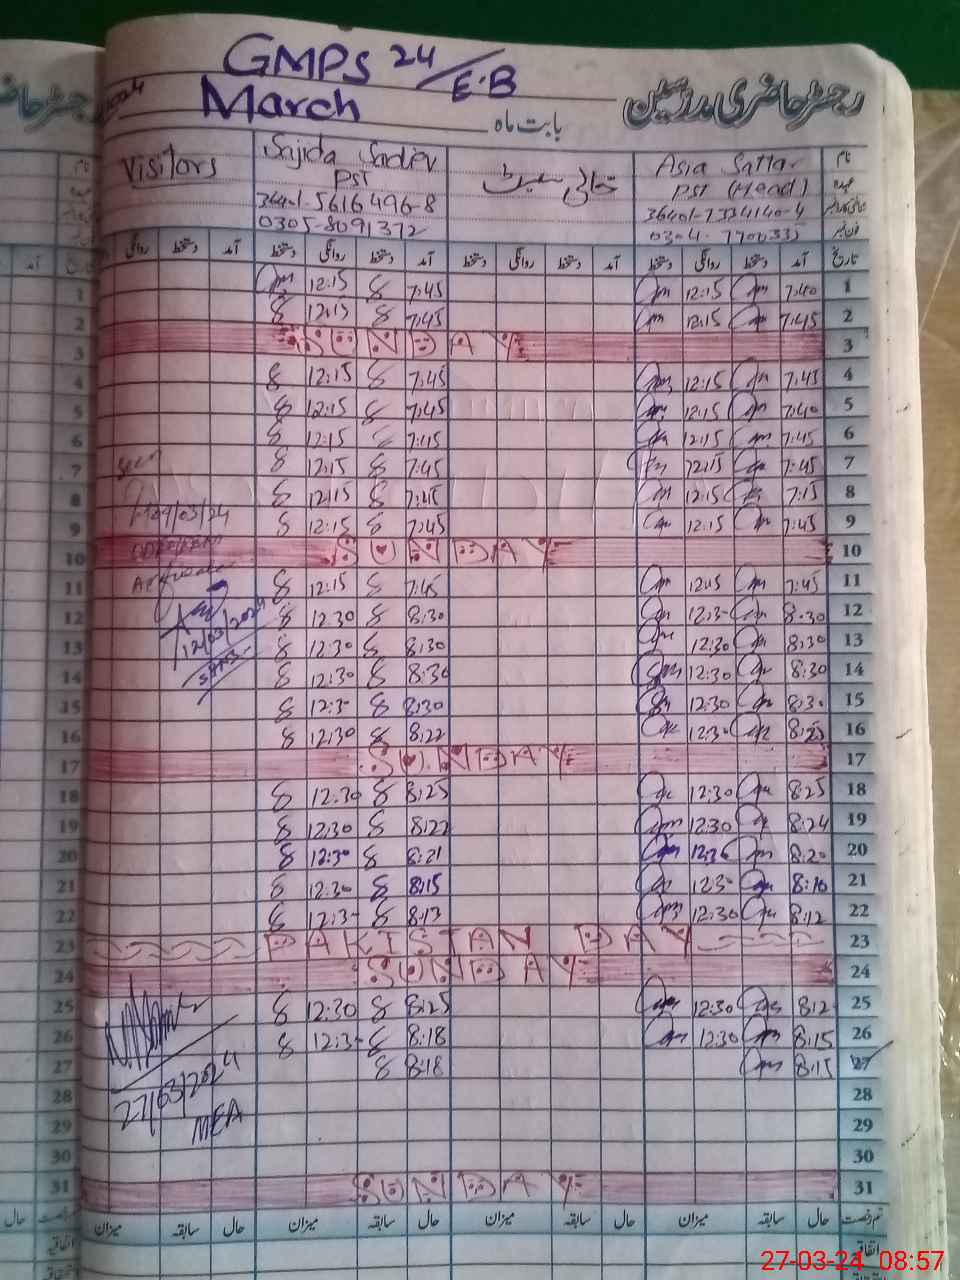 GMPS 24/E.B
March
رجسٹر حاضری مدرسین
بابت ماہ
Visitors Sajida Sadiev خالی سیٹ Asia Sattar نام
PST PST (Head) عہدہ
36401-5616496-8 36401-7334140-4
0305-8091372 0304-7700335 فون نمبر
آمد دستخط روانگی دستخط آمد دستخط روانگی دستخط آمد دستخط روانگی دستخط آمد تاریخ
1 12:15 7:45 12:15 7:40 1
2 12:15 7:45 12:15 7:45 2
3 SUNDAY 3
4 12:15 7:45 12:15 7:45 4
5 12:15 7:45 12:15 7:40 5
6 12:15 7:45 12:15 7:45 6
7 Seen 12:15 7:45 12:15 7:45 7
8 12:15 7:45 12:15 7:45 8
9 09/03/24 12:15 7:45 12:15 7:45 9
10 SUNDAY 10
11 12:15 7:45 12:15 7:45 11
12 12:30 8:30 12:30 8:30 12
13 12/03/2024 12:30 8:30 12:30 8:30 13
14 12:30 8:30 12:30 8:30 14
15 12:3- 8:30 12:30 8:30 15
16 12:30 8:22 12:30 8:25 16
17 SUNDAY 17
18 12:30 8:25 12:30 8:25 18
19 12:30 8:22 12:30 8:24 19
20 12:30 8:21 12:30 8:20 20
21 12:30 8:15 12:30 8:10 21
22 12:3- 8:13 12:30 8:12 22
23 PAKISTAN DAY 23
24 SUNDAY 24
25 12:30 8:25 12:30 8:2 25
26 12:3- 8:18 12:30 8:15 26
27 8:18 8:15 27
27/03/2024
28 28
29 MEA 29
30 30
31 SUNDAY 31
میزان سابقہ حال میزان سابقہ حال میزان سابقہ حال میزان سابقہ حال قسم رخصت
حال
اتفاقیہ اتفاقیہ
27-03-24 08:57